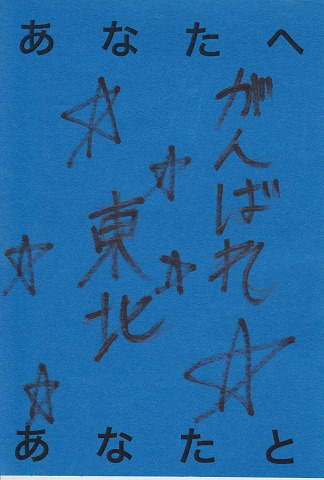 あなたへ
がんばれ
東北
あなたと